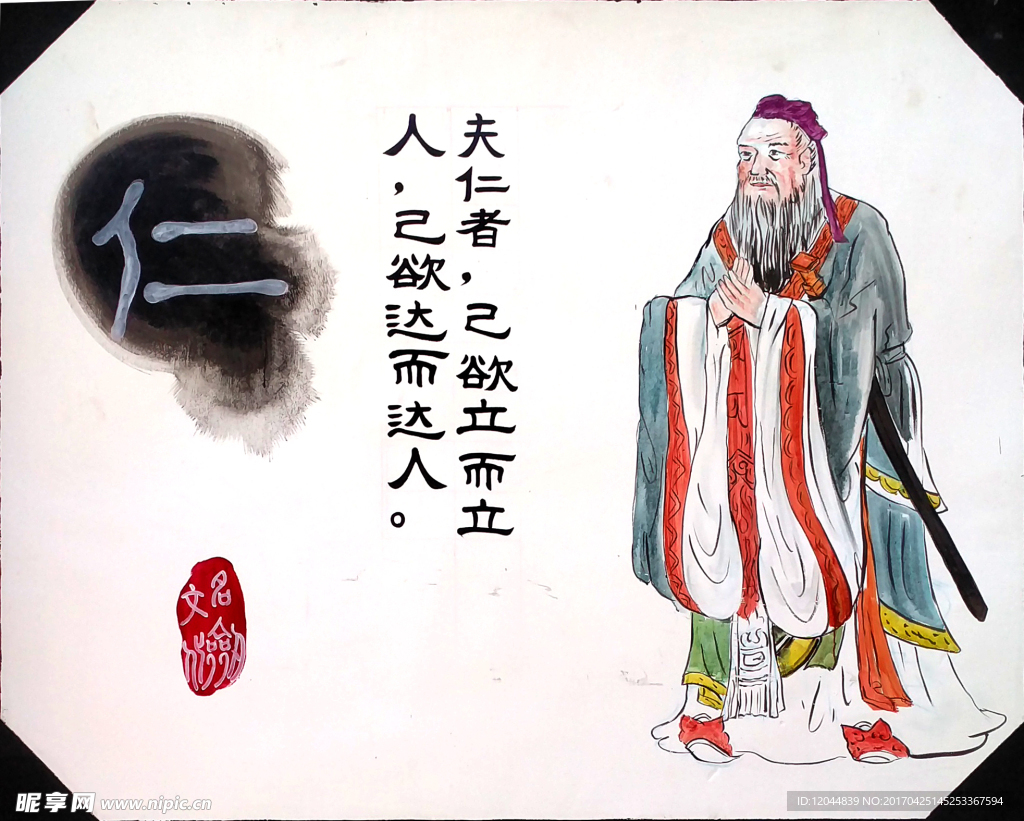 仁
夫仁者，己欲立而立
人，己欲达而达人。
名
文
昵享网 www.nipic.cn
ID:12044839 NO:20170425145253367594